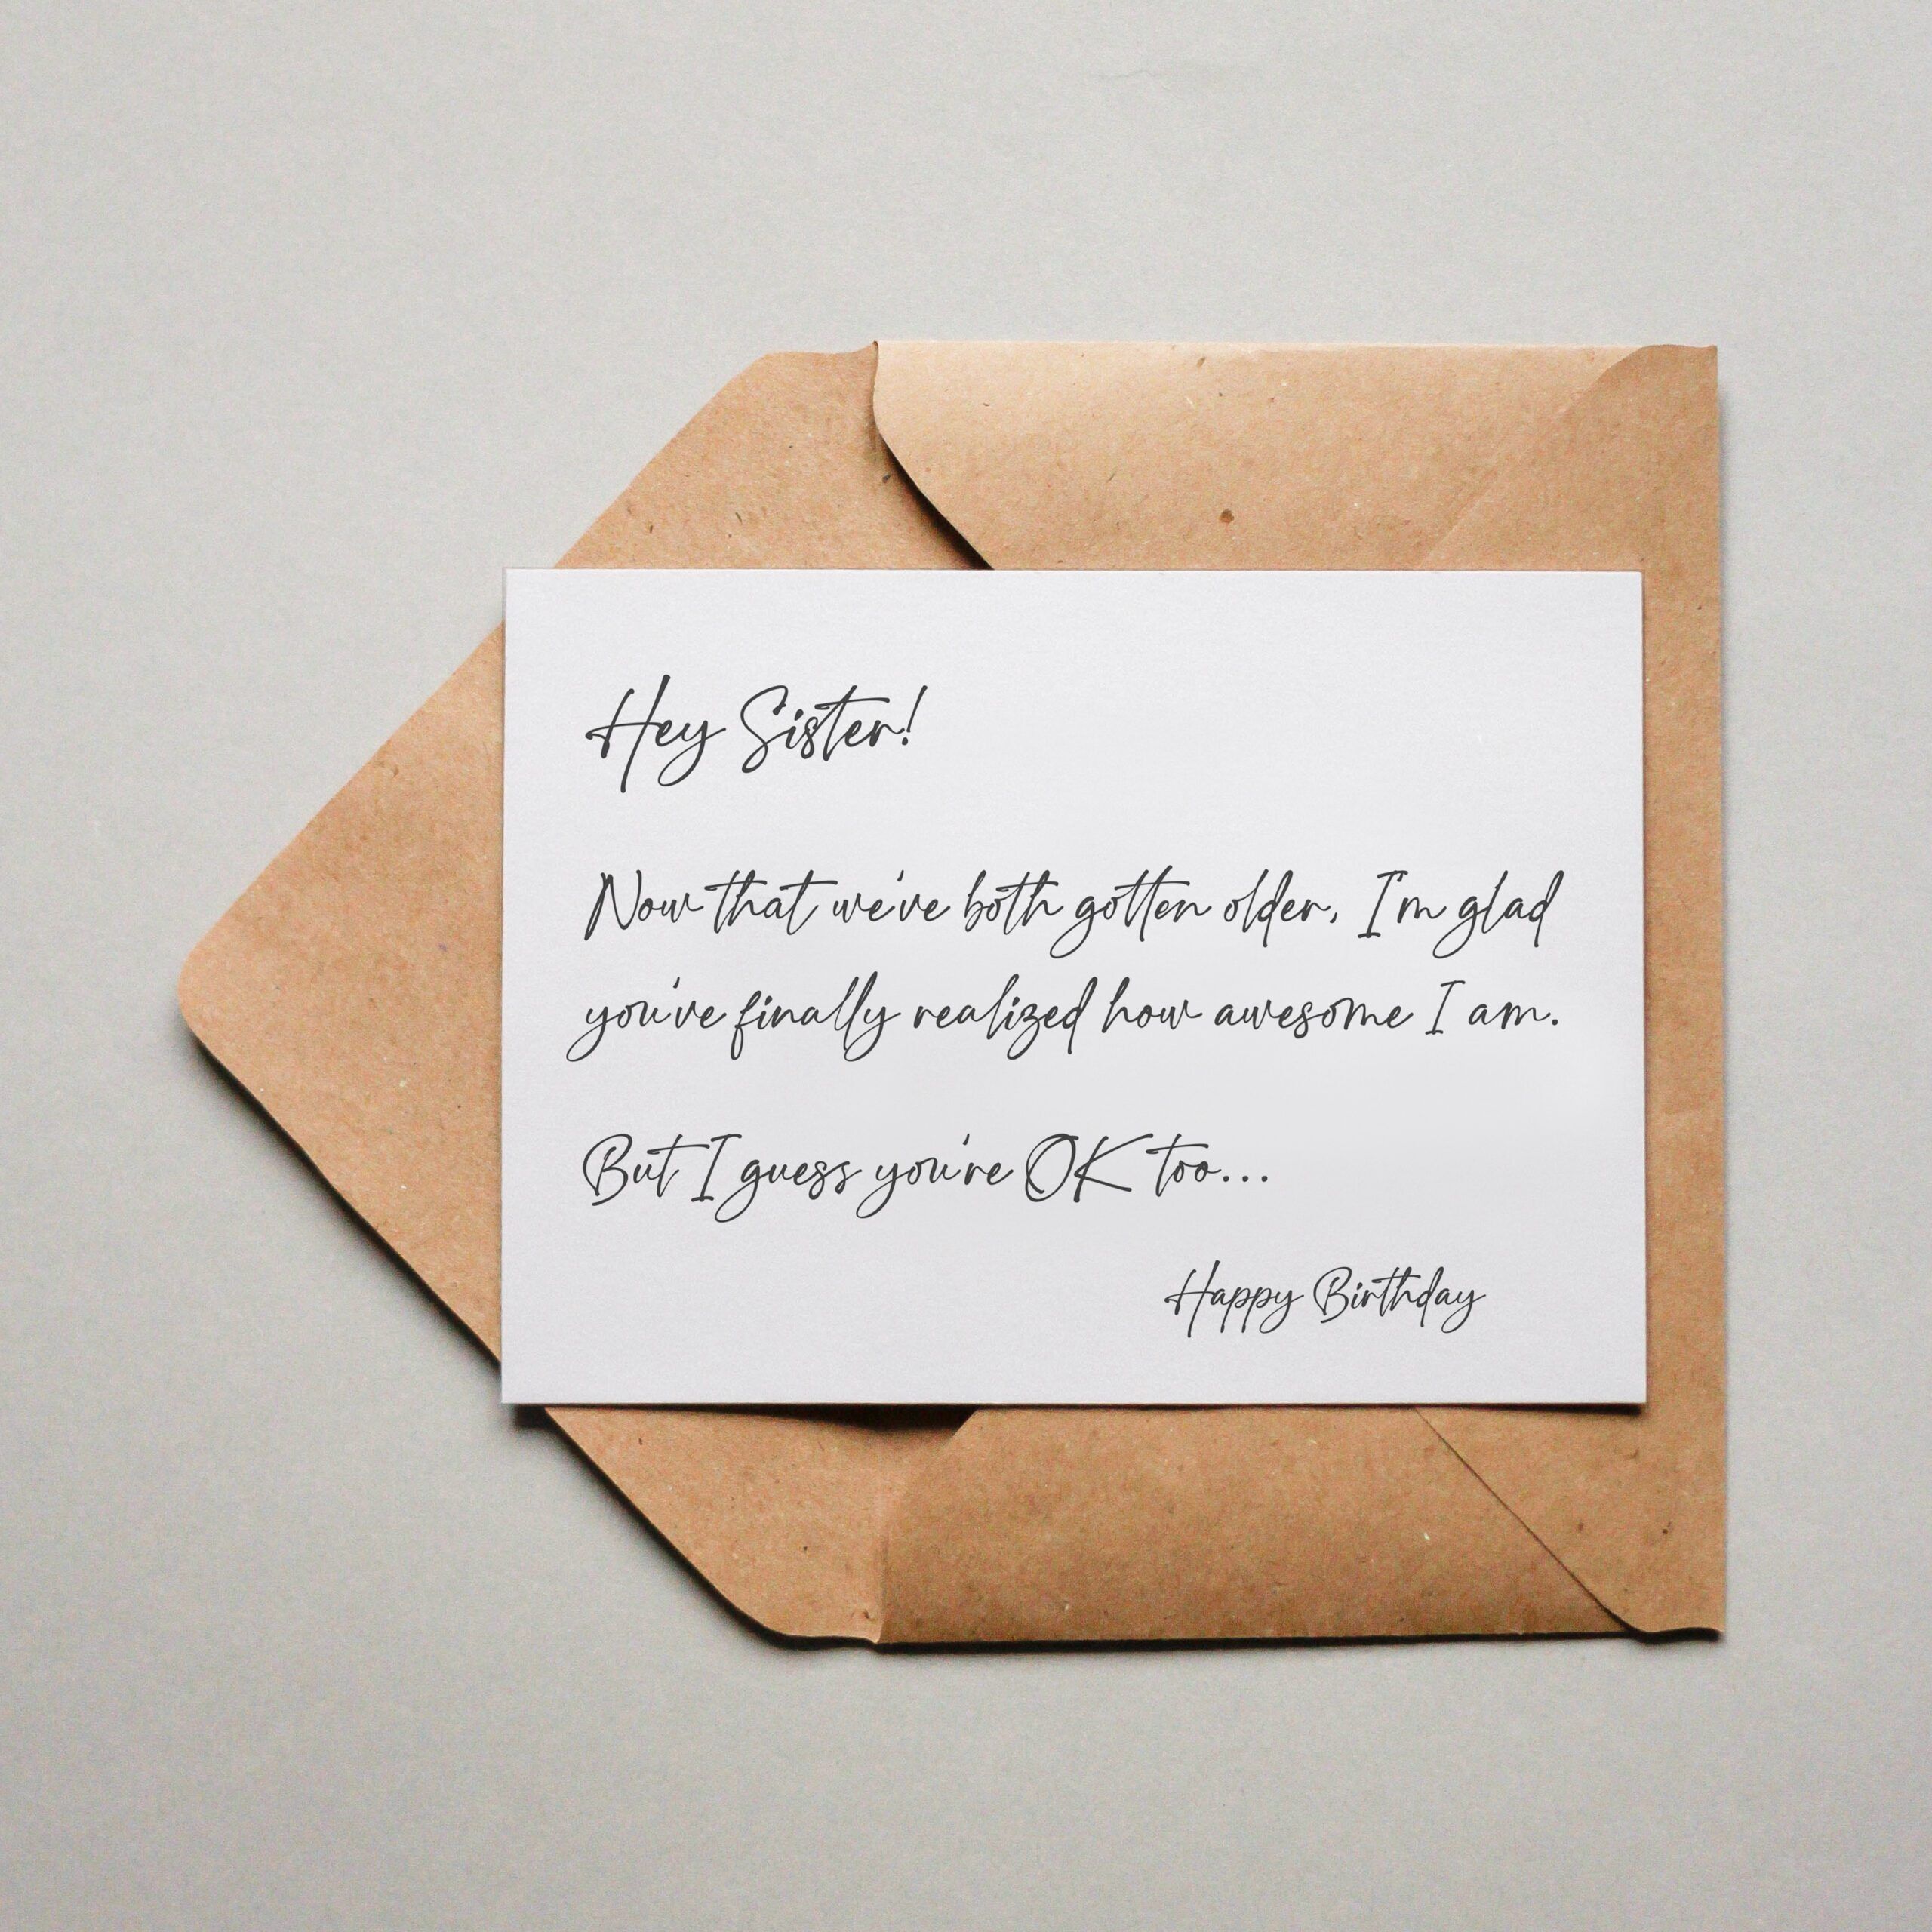 Hey Sister!
Now that we've both gotten older, I'm glad
you've finally realized how awesome I am.
But I guess you're OK too...
Happy Birthday